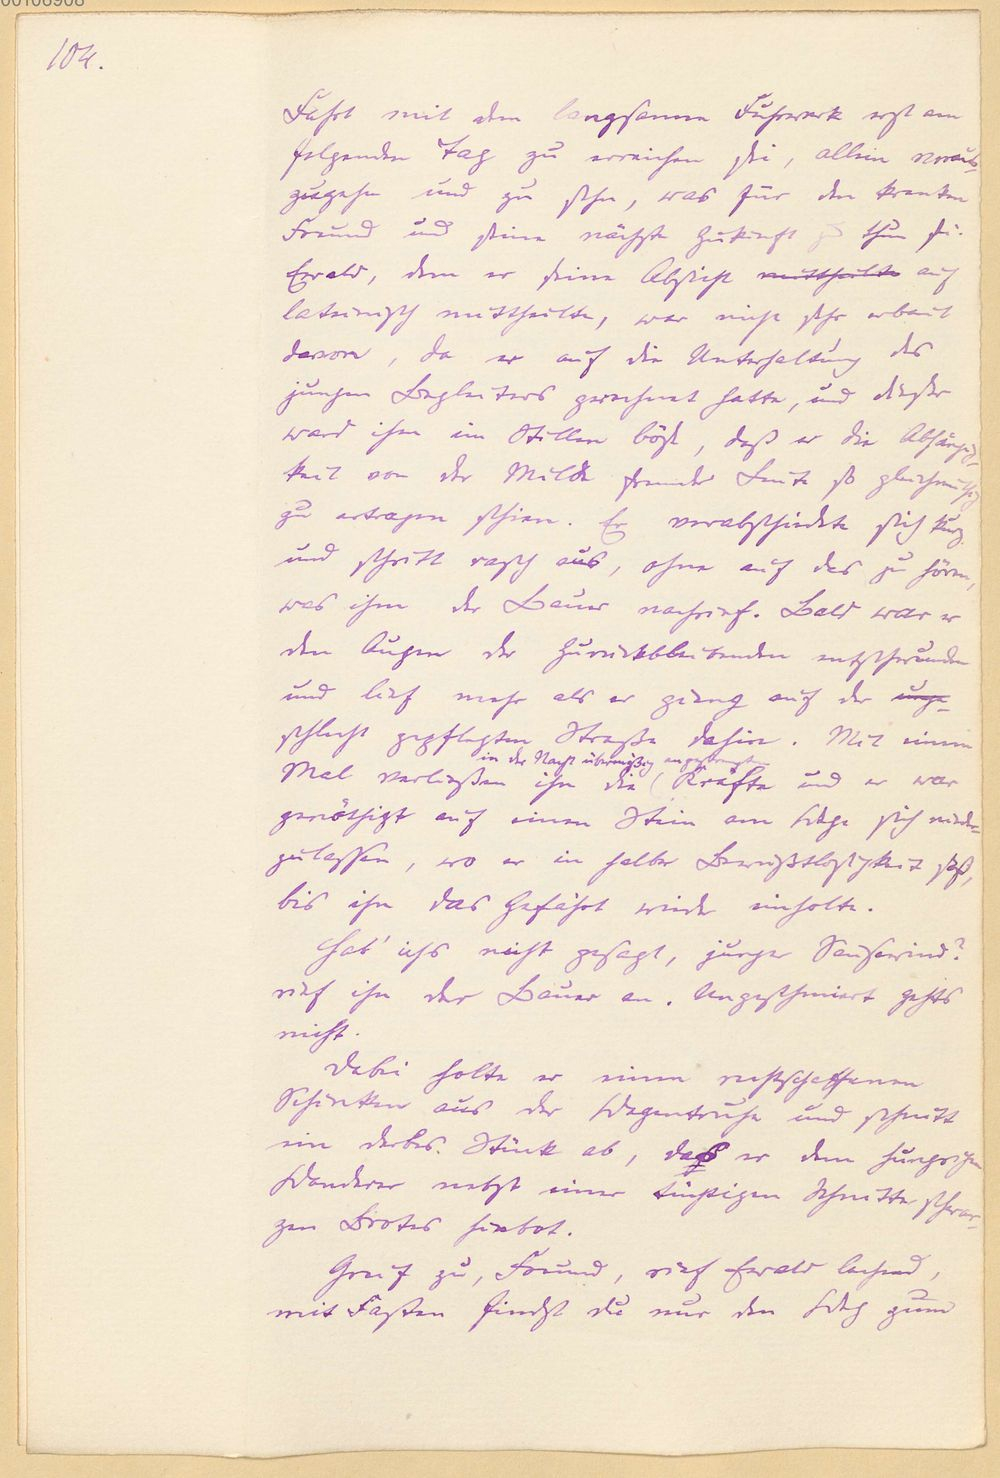 104.
Fahrt mit dem langsamen Fuhrwerk erst am
folgenden Tag zu erreichen sei, allein voraus-
zugehn und zu sehn, was für den kranken
Freund und seine nächste Zukunft zu thun sei.
Ewald, dem er seine Absicht mittheilte auf
lateinisch mittheilte, war nicht sehr erbaut
davon, da er auf die Unterhaltung des
jungen Begleiters gerechnet hatte, und dieser
ward ihm im Stillen böse, daß er die Abhängig-
keit von der Milde fremder Leute so gleichmüthig
zu ertragen schien. Er verabschiedete sich kurz
und schritt rasch aus, ohne auf das zu hören,
was ihm der Bauer nachrief. Bald war er
den Augen der Zurückbleibenden entschwunden
und lief mehr als er gieng auf der unge-
schlecht gepflegten Straße dahin. Mit einem
in der Nacht übermäßig angestrengten
Mal verließen ihn die Kräfte und er war
genöthigt auf einen Stein am Wege sich nieder-
zulassen, wo er in halber Bewußtlosigkeit saß,
bis ihn das Gefährt wieder einholte.
Hab' ichs nicht gesagt, junger Sausewind?
rief ihn der Bauer an. Ungeschmiert gehts
nicht.
Dabei holte er einen rechtschaffenen
Schinken aus der Wagentruhe und schnitt
ein derbes Stück ab, das er dem hungrigen
Wanderer nebst einer tüchtigen Schnitte schwar-
zen Brotes hinbot.
Greif zu, Freund, rief Ewald lachend,
mit Fasten findest du nur den Weg zum